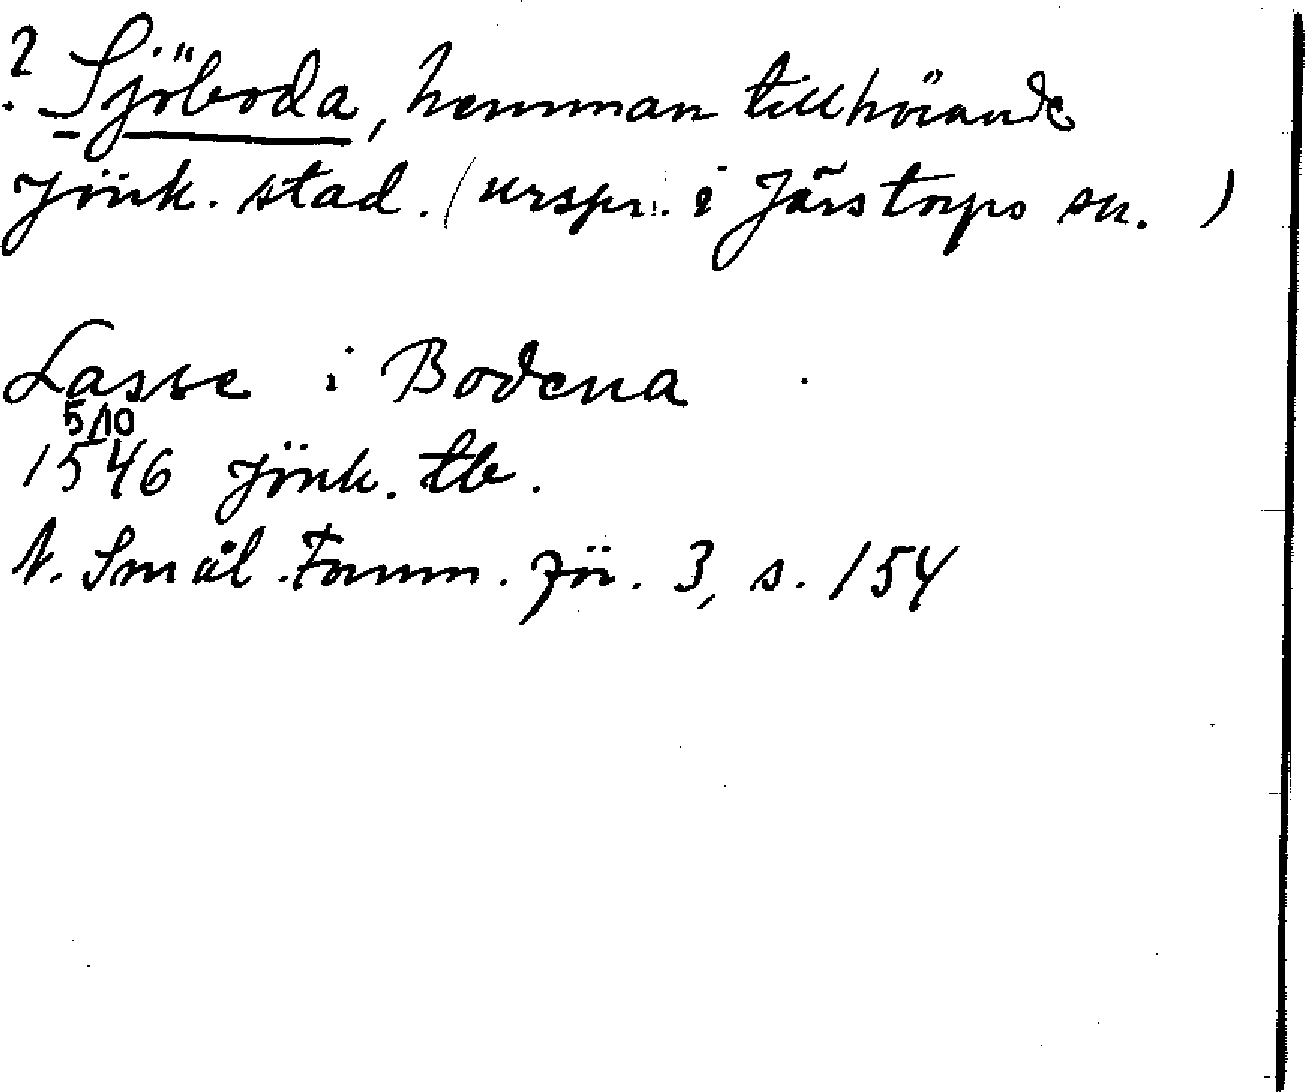 ? Sjöboda, hemman tillhörande
Jönk. stad. (urspr. i Järstorps sn. )
Lasse i Bodena
5/10
1546 Jönk. tb.
N. Smål. Fornm. för. 3, s. 154